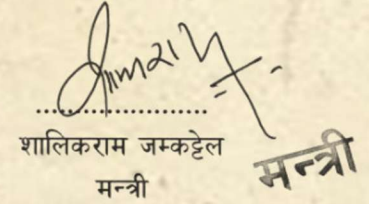 ....................
शालिकराम जम्कट्टेल
मन्त्री
मन्त्री